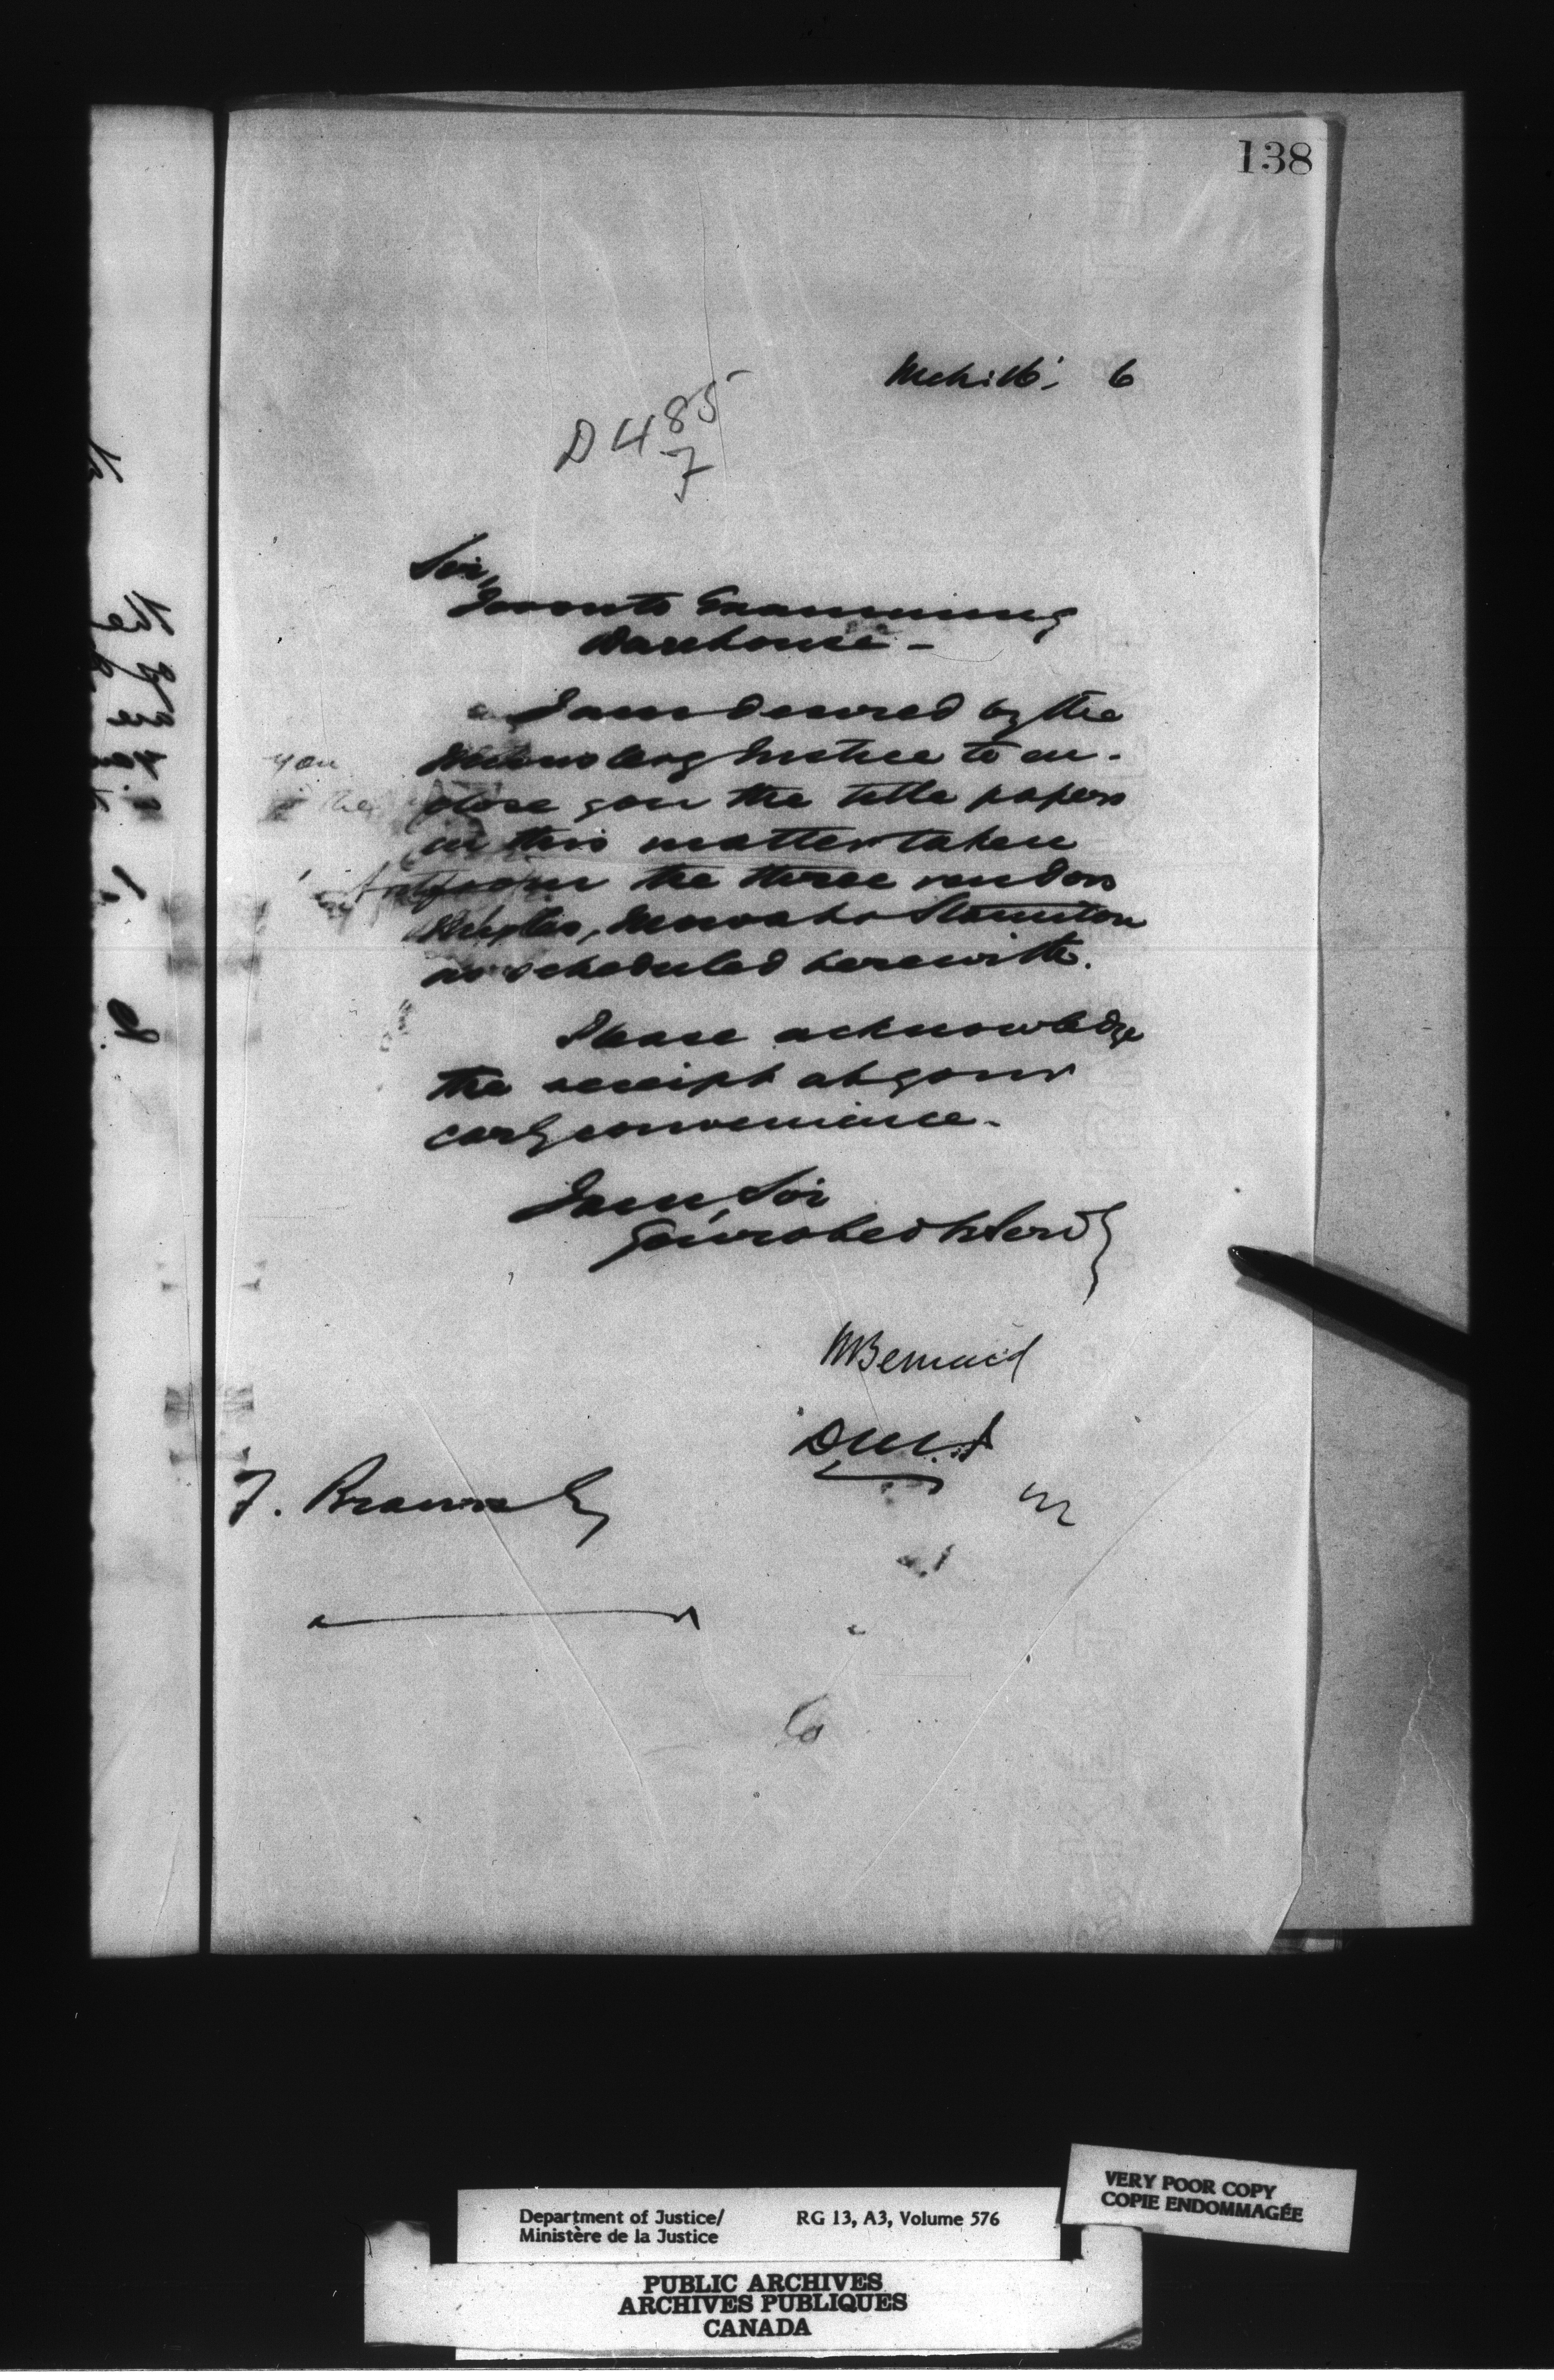 138
Mch: 16: 6
D 485
7
Sir,
Toronto Examining
Warehouse -
I am desired by the
Minister of Justice to en-
close you the title papers
in this matter taken
from the three vendors
as scheduled herewith.
Please acknowledge
the receipt at your
early convenience.
I am, Sir
Your obed t Serv t
HBernard
D.M.J
F. Braun Esq
Department of Justice/
Ministère de la Justice
RG 13, A3, Volume 576
VERY POOR COPY
COPIE ENDOMMAGÉE
PUBLIC ARCHIVES
ARCHIVES PUBLIQUES
CANADA